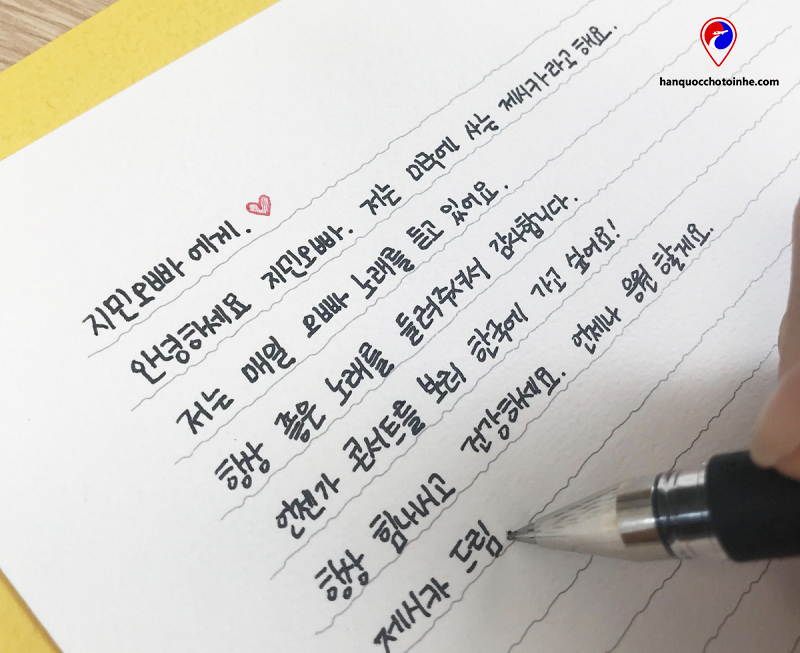 hanquocchotoinhe.com
지민오빠에게.
안녕하세요 지민오빠. 저는 미국에 사는 제시카라고 해요.
저는 매일 오빠 노래를 듣고 있어요.
항상 좋은 노래를 들려주셔서 감사합니다.
언젠가 콘서트를 보러 한국에 가고 싶어요!
항상 힘내시고 건강하세요. 언제나 응원 할게요.
제시카 드림